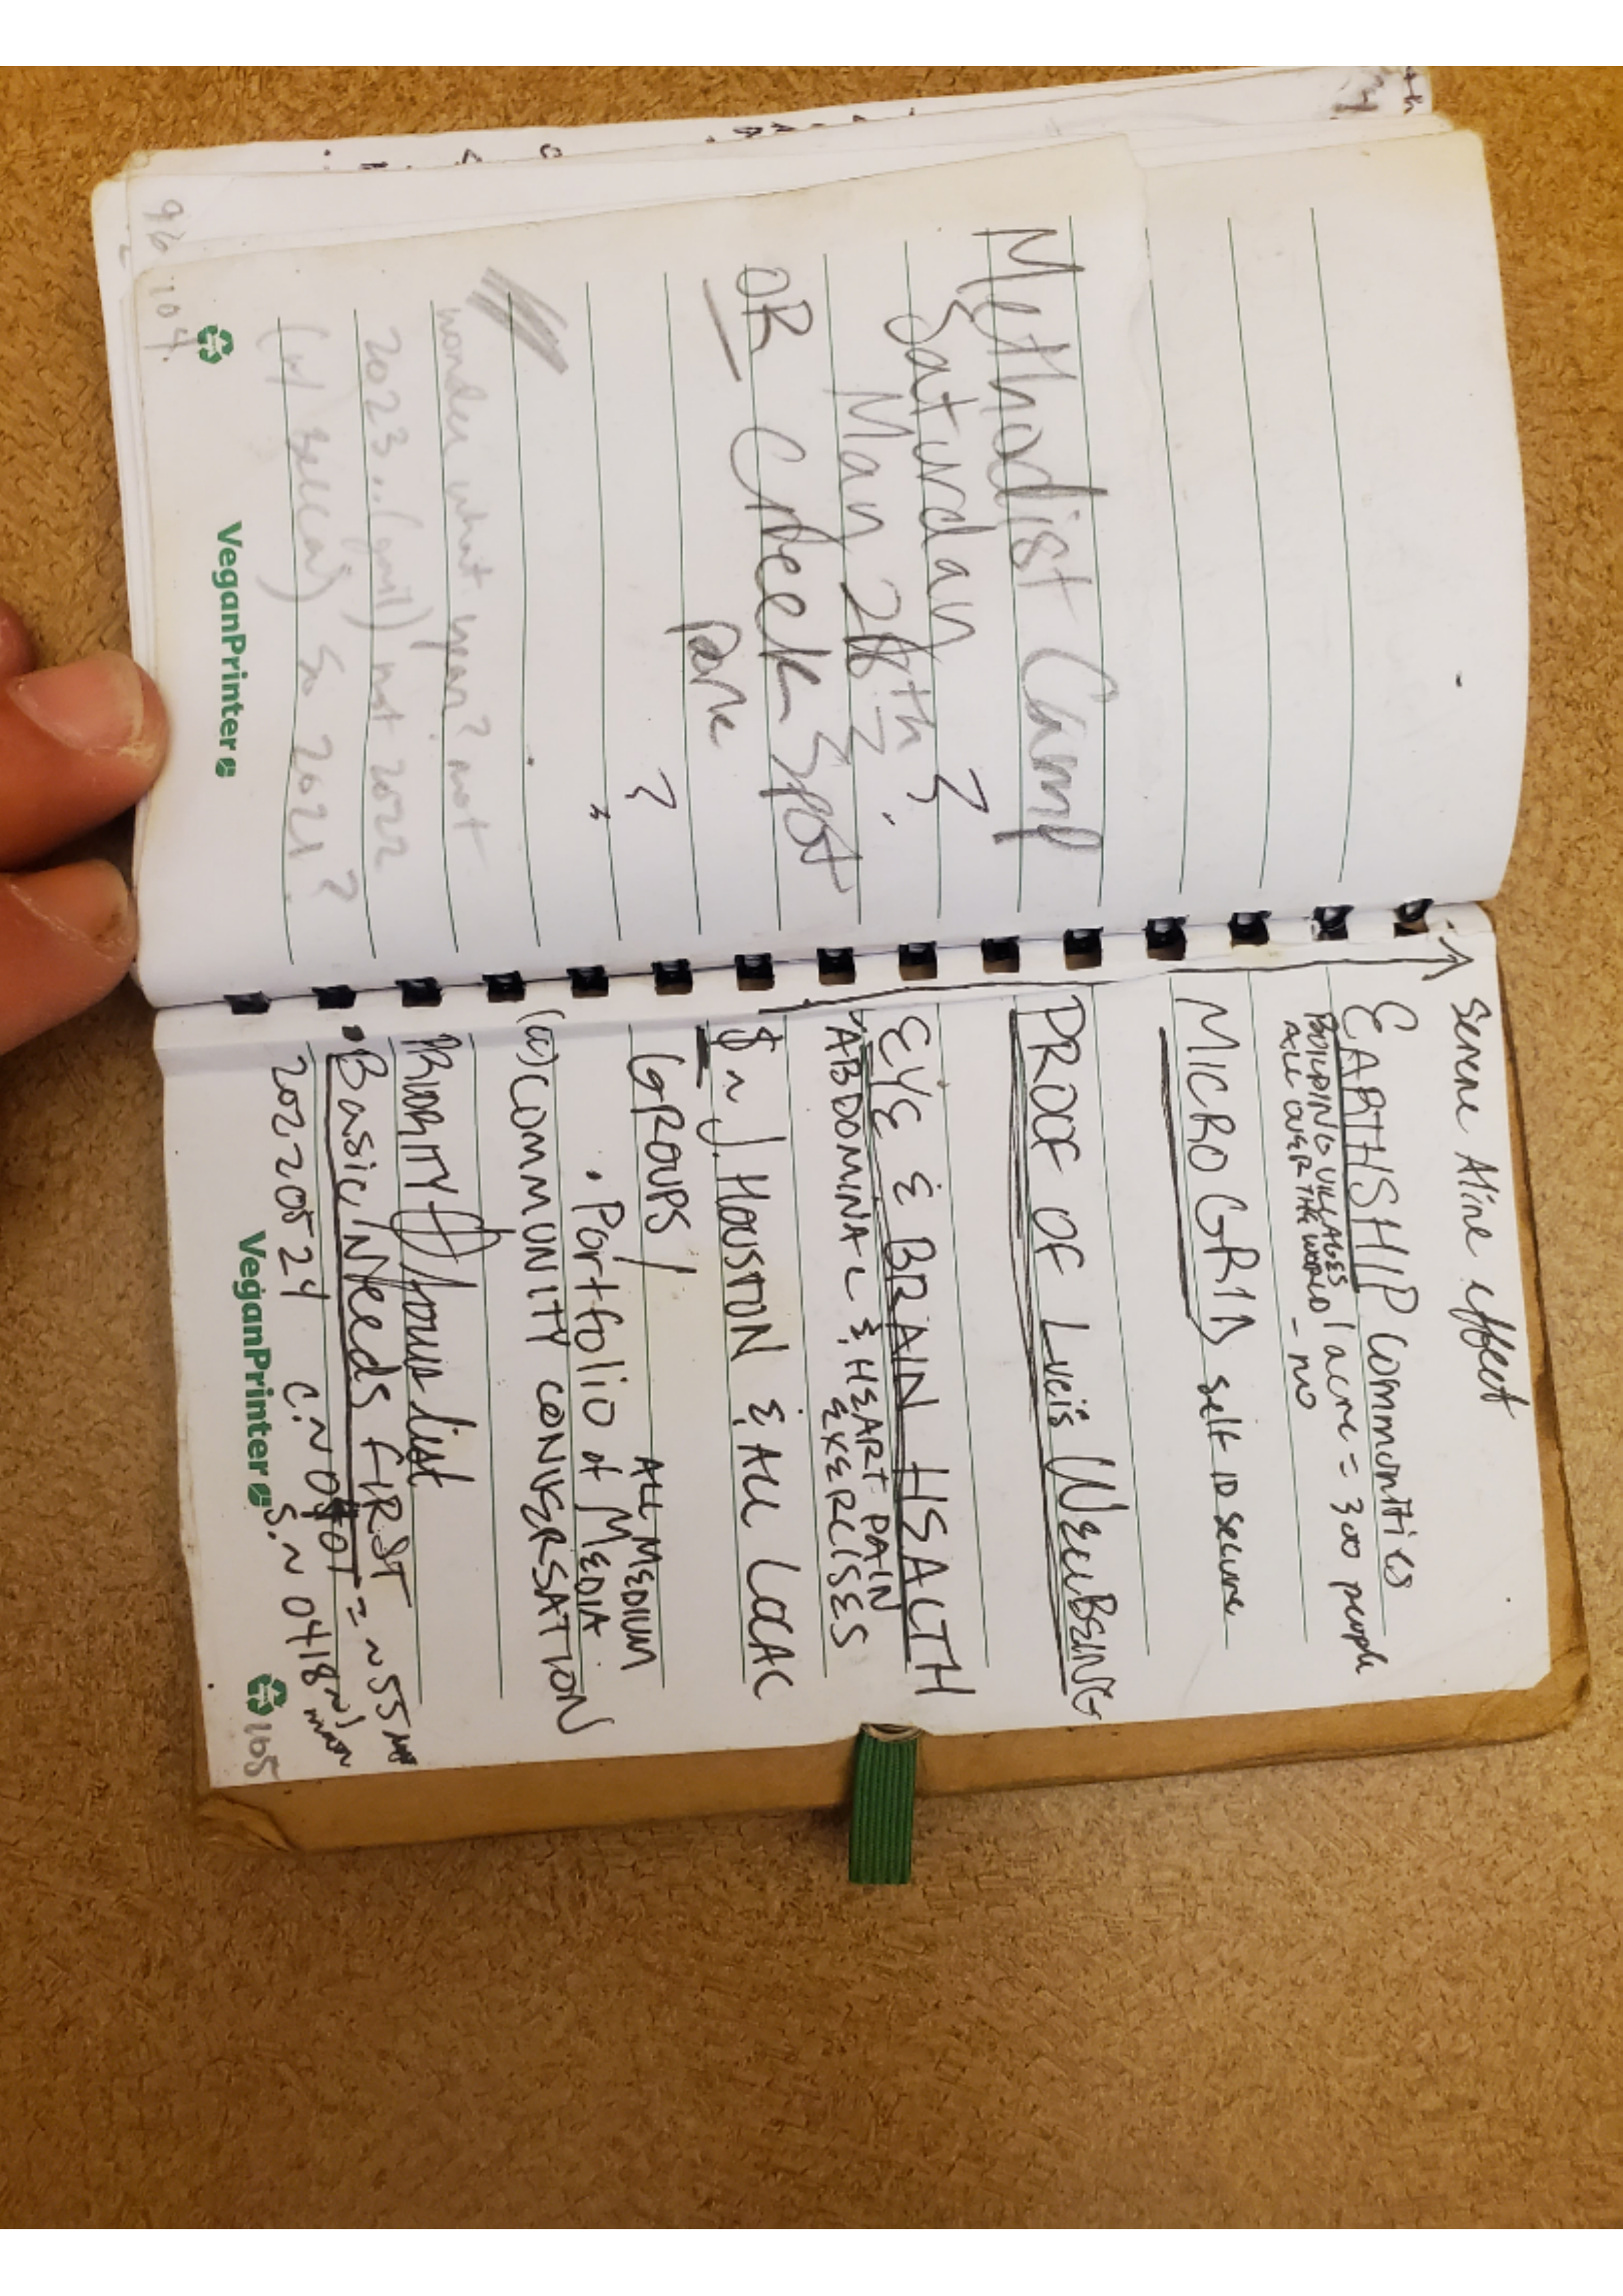 Methodist Camp
Saturday ?
May 28th ?
OR Creek Spot
Park ?
wonder what year? not
2023..(gmil) not 2022
so 2021?
VeganPrinter
96 104.
Serene Aline effect
EARTHSHIP COMMUNITIES
BUILDING VILLAGES 1 acre = 300 people
ALL OVER THE WORLD - no
MICRO GRID self ID secure
PROOF OF Luis WELLBEING
EYE & BRAIN HEALTH
ABDOMINAL & HEART PAIN
EXERCISES
$ ~ J. HOUSTON & ALL LOCAL
GROUPS / ALL MEDIUM
• Portfolio of MEDIA
(a) COMMUNITY CONVERSATION
PRIORITY focus list
• Basic/Needs FIRST
20220524 C.N 0407 = ~55
S.N 0418
VeganPrinter
105